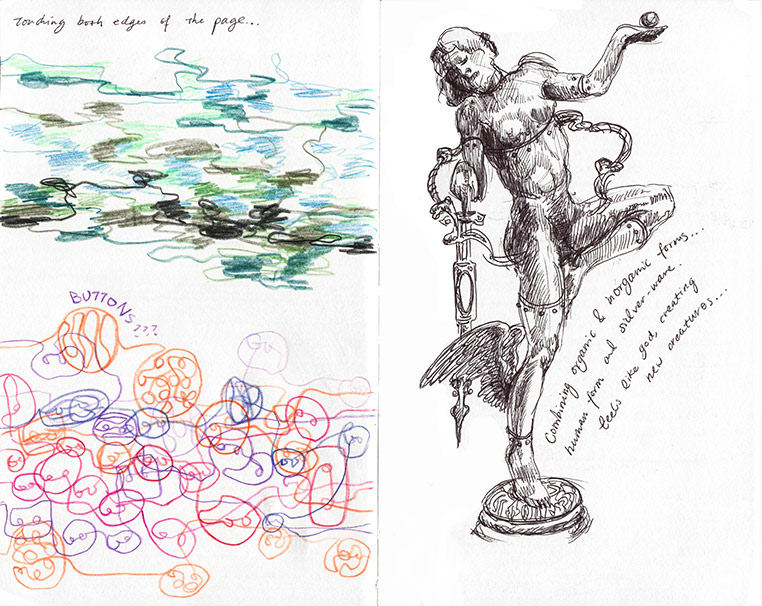 Touching both edges of the page...
BUTTONS???
Combining organic & inorganic forms...
human form and silver-wave...
feels like god, creating
new creatures...